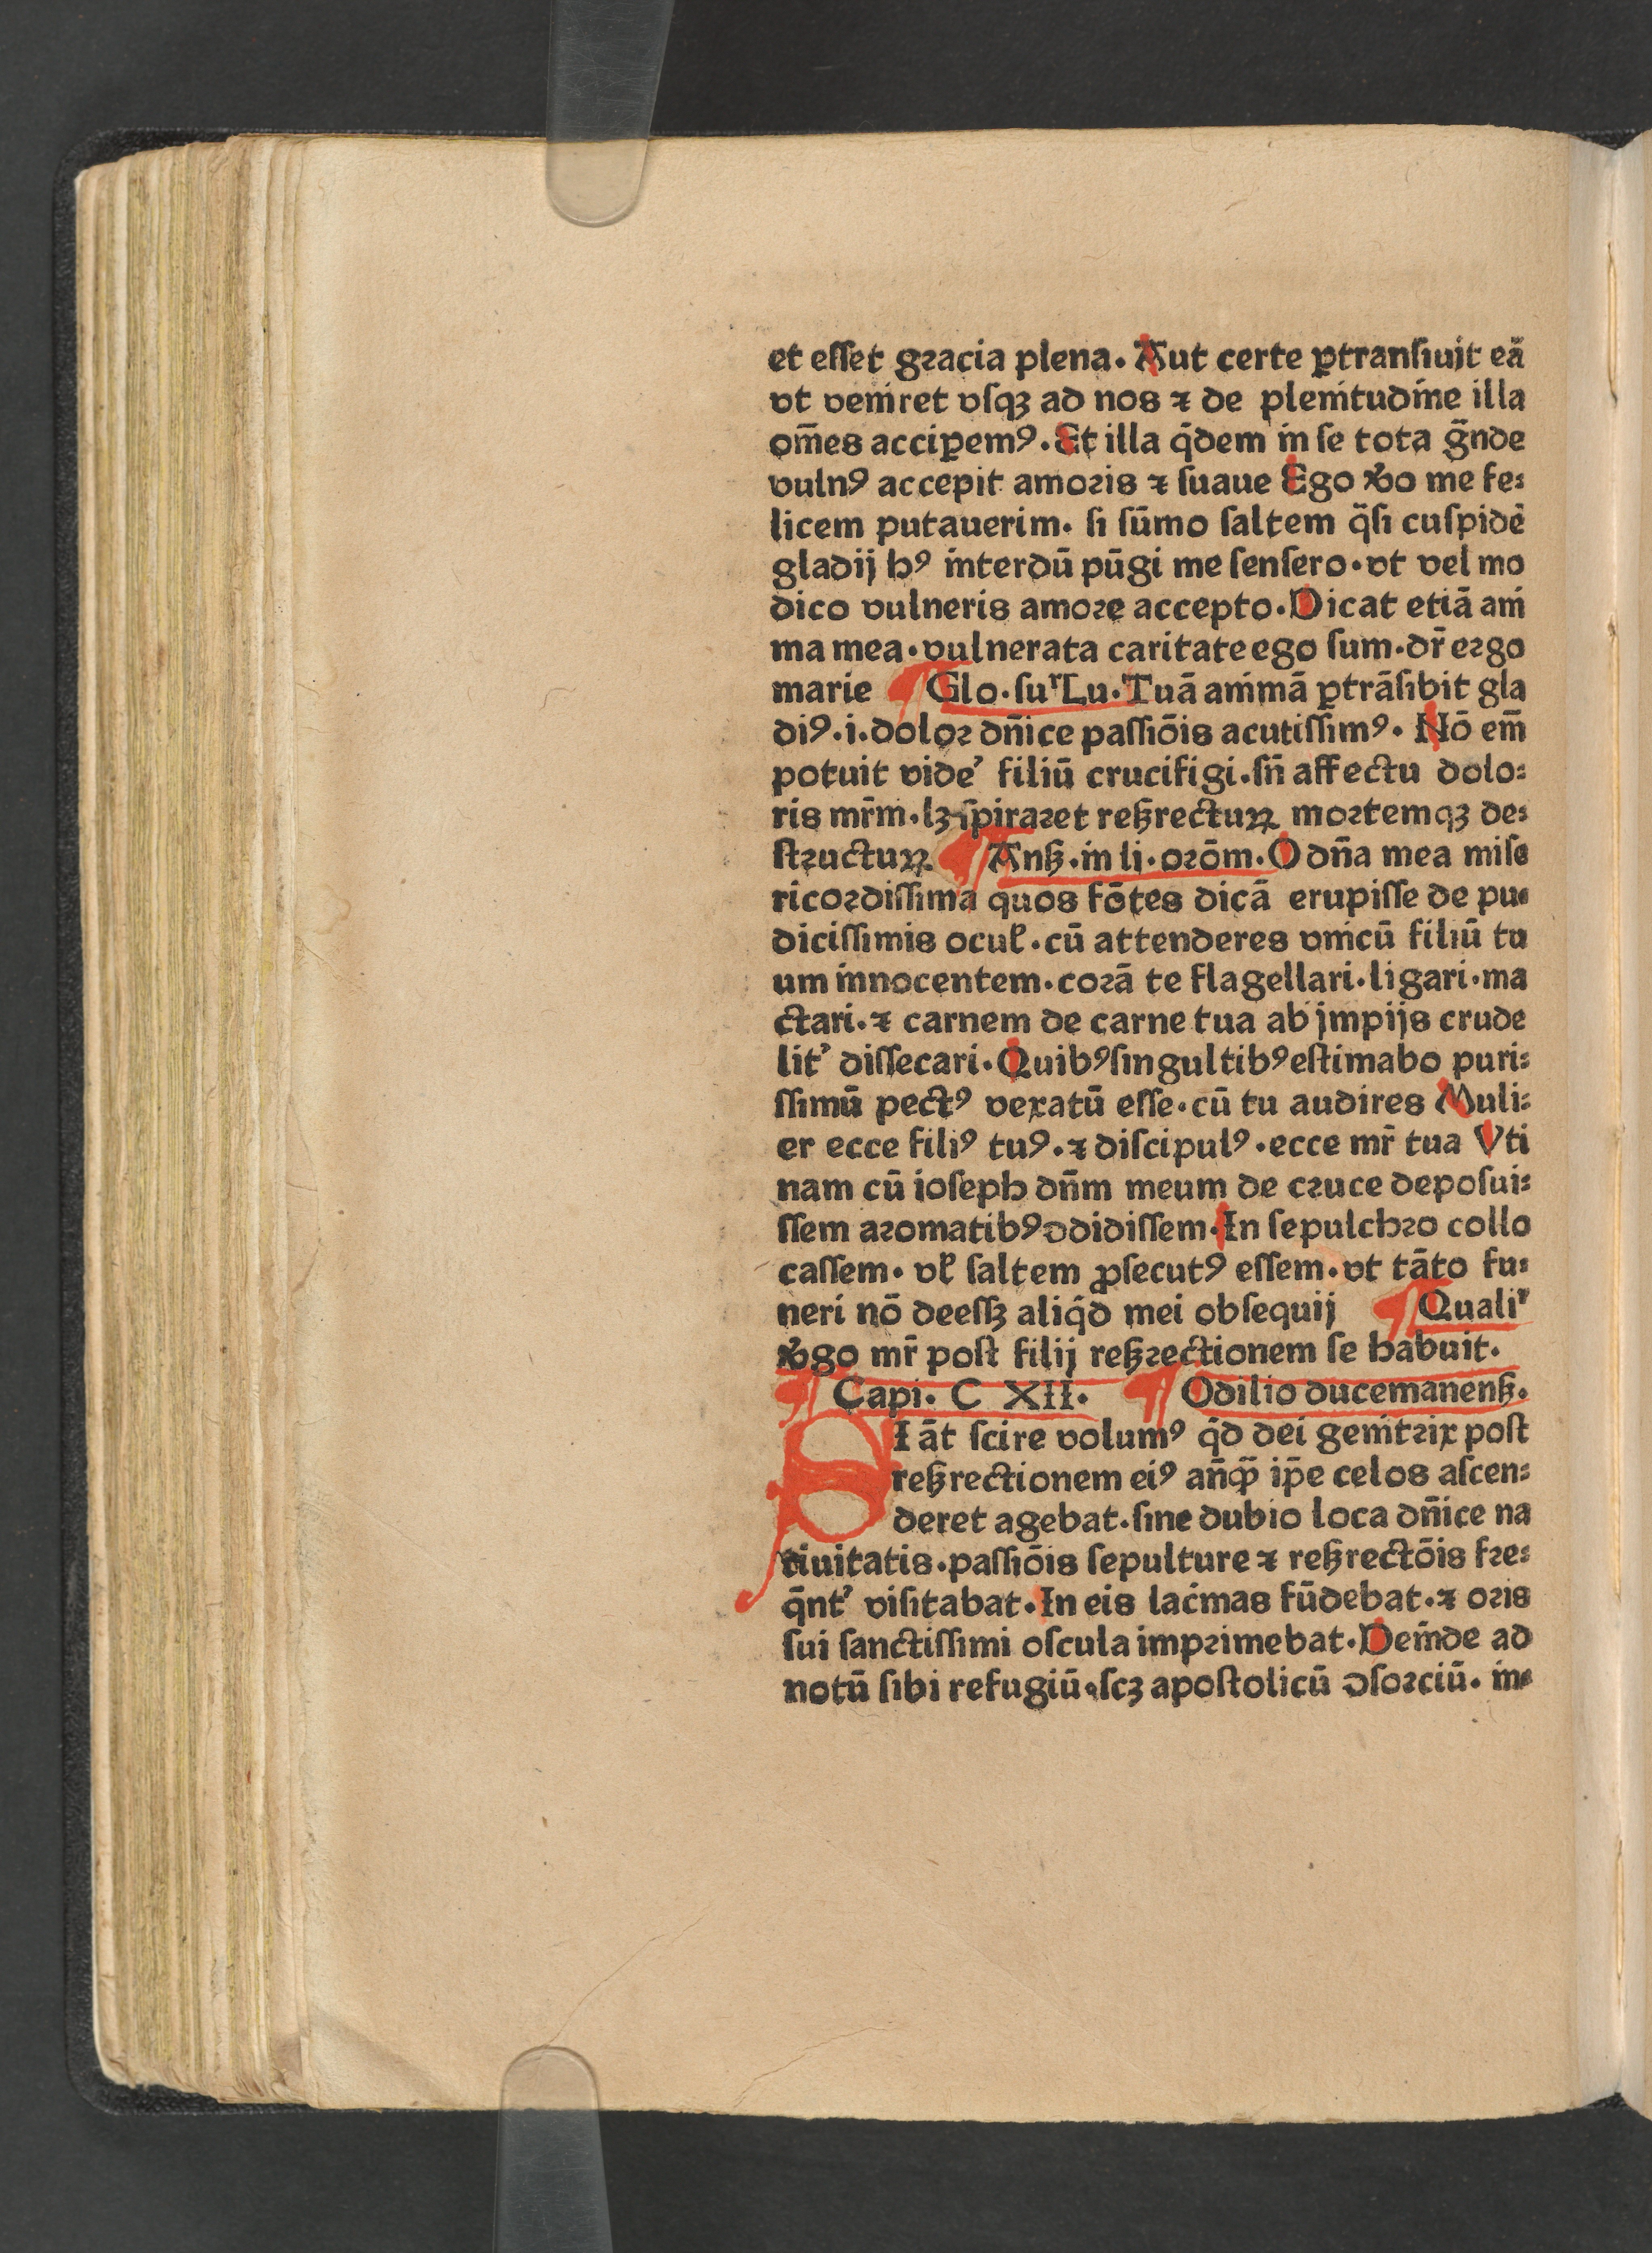 et eſſet gꝛacia plena. Aut certe ꝑtranſiuit eā
vt veniret vſqꝫ ad nos ⁊ de plenitudine illa
om̄es acciꝑemꝰ. Et illa q̄dem in ſe tota g̃nde
vulnꝰ accepit amoꝛis ⁊ ſuaue Ego v̾o me fe⸗
licem putauerim. ſi ſūmo ſaltem q̄ſi cuſpidē
gladij hꝰ interdū pūgi me ſenſero.vt vel mo
dico vulneris amoꝛe accepto. Dicat etiā ani
ma mea.vulnerata caritate ego ſum.dr̄ eꝛgo
marie ¶ Glo.ſuꝑ Lu. Tuā animā ꝑtrāſibit gla
diꝰ.i.doloꝛ dn̄ice paſſiōis acutiſſimꝰ. Nō em̄
potuit videʼ filiū crucifigi.ſn̄ affectu dolo⸗
ris mr̄m.lꝫ ſpiraꝛet reſꝫrectuꝝ moꝛtemqꝫ de⸗
ſtꝛuctuꝝ ¶ Anſꝫ.in li.oꝛōm. O dn̄a mea miſe
ricoꝛdiſſima quos fōtes dicā erupiſſe de pu⸗
diciſſimis oculꝭ.cū attenderes vnicū filiū tu
um innocentem.coꝛā te flagellari.ligari.ma
ctari.⁊ carnem de carne tua ab jmpijs crude
litʼ diſſecari. Quibꝰ ſingultibꝰ eſtimabo puri⸗
ſſimū pectꝰ vexatū eſſe.cū tu audires Muli⸗
er ecce filiꝰ tuꝰ.⁊ diſcipulꝰ.ecce mr̄ tua Vti
nam cū ioſeph dn̄m meum de cꝛuce depoſui⸗
ſſem aꝛomatibꝰ ↄdidiſſem. In ſepulchꝛo collo
caſſem. vl̛ ſaltem ꝓſecutꝰ eſſem.vt tāto fu⸗
neri nō deeſſꝫ aliq̄d mei obſequij ¶ Qualiʼ
v̾go mr̄ poſt filij reſꝫꝛectionem ſe habuit.
¶ Capi. C XII. ¶ Odilio ducemanenſꝫ.
SI āt ſcire volumꝰ q̄d dei genitꝛix poſt
reſꝫrectionem eiꝰ an̄qꝫ̄ ip̄e celos aſcen⸗
deret agebat.ſine dubio loca dn̄ice na
tiuitatis.paſſiōis ſepulture ⁊ reſꝫrectōis fꝛe⸗
q̄ntʼ viſitabat. In eis lacimas fūdebat.⁊ oꝛis
ſui ſanctiſſimi oſcula impꝛimebat. Deinde ad
notū ſibi refugiū.ſcꝫ apoſtolicū ↄſoꝛciū. in⸗